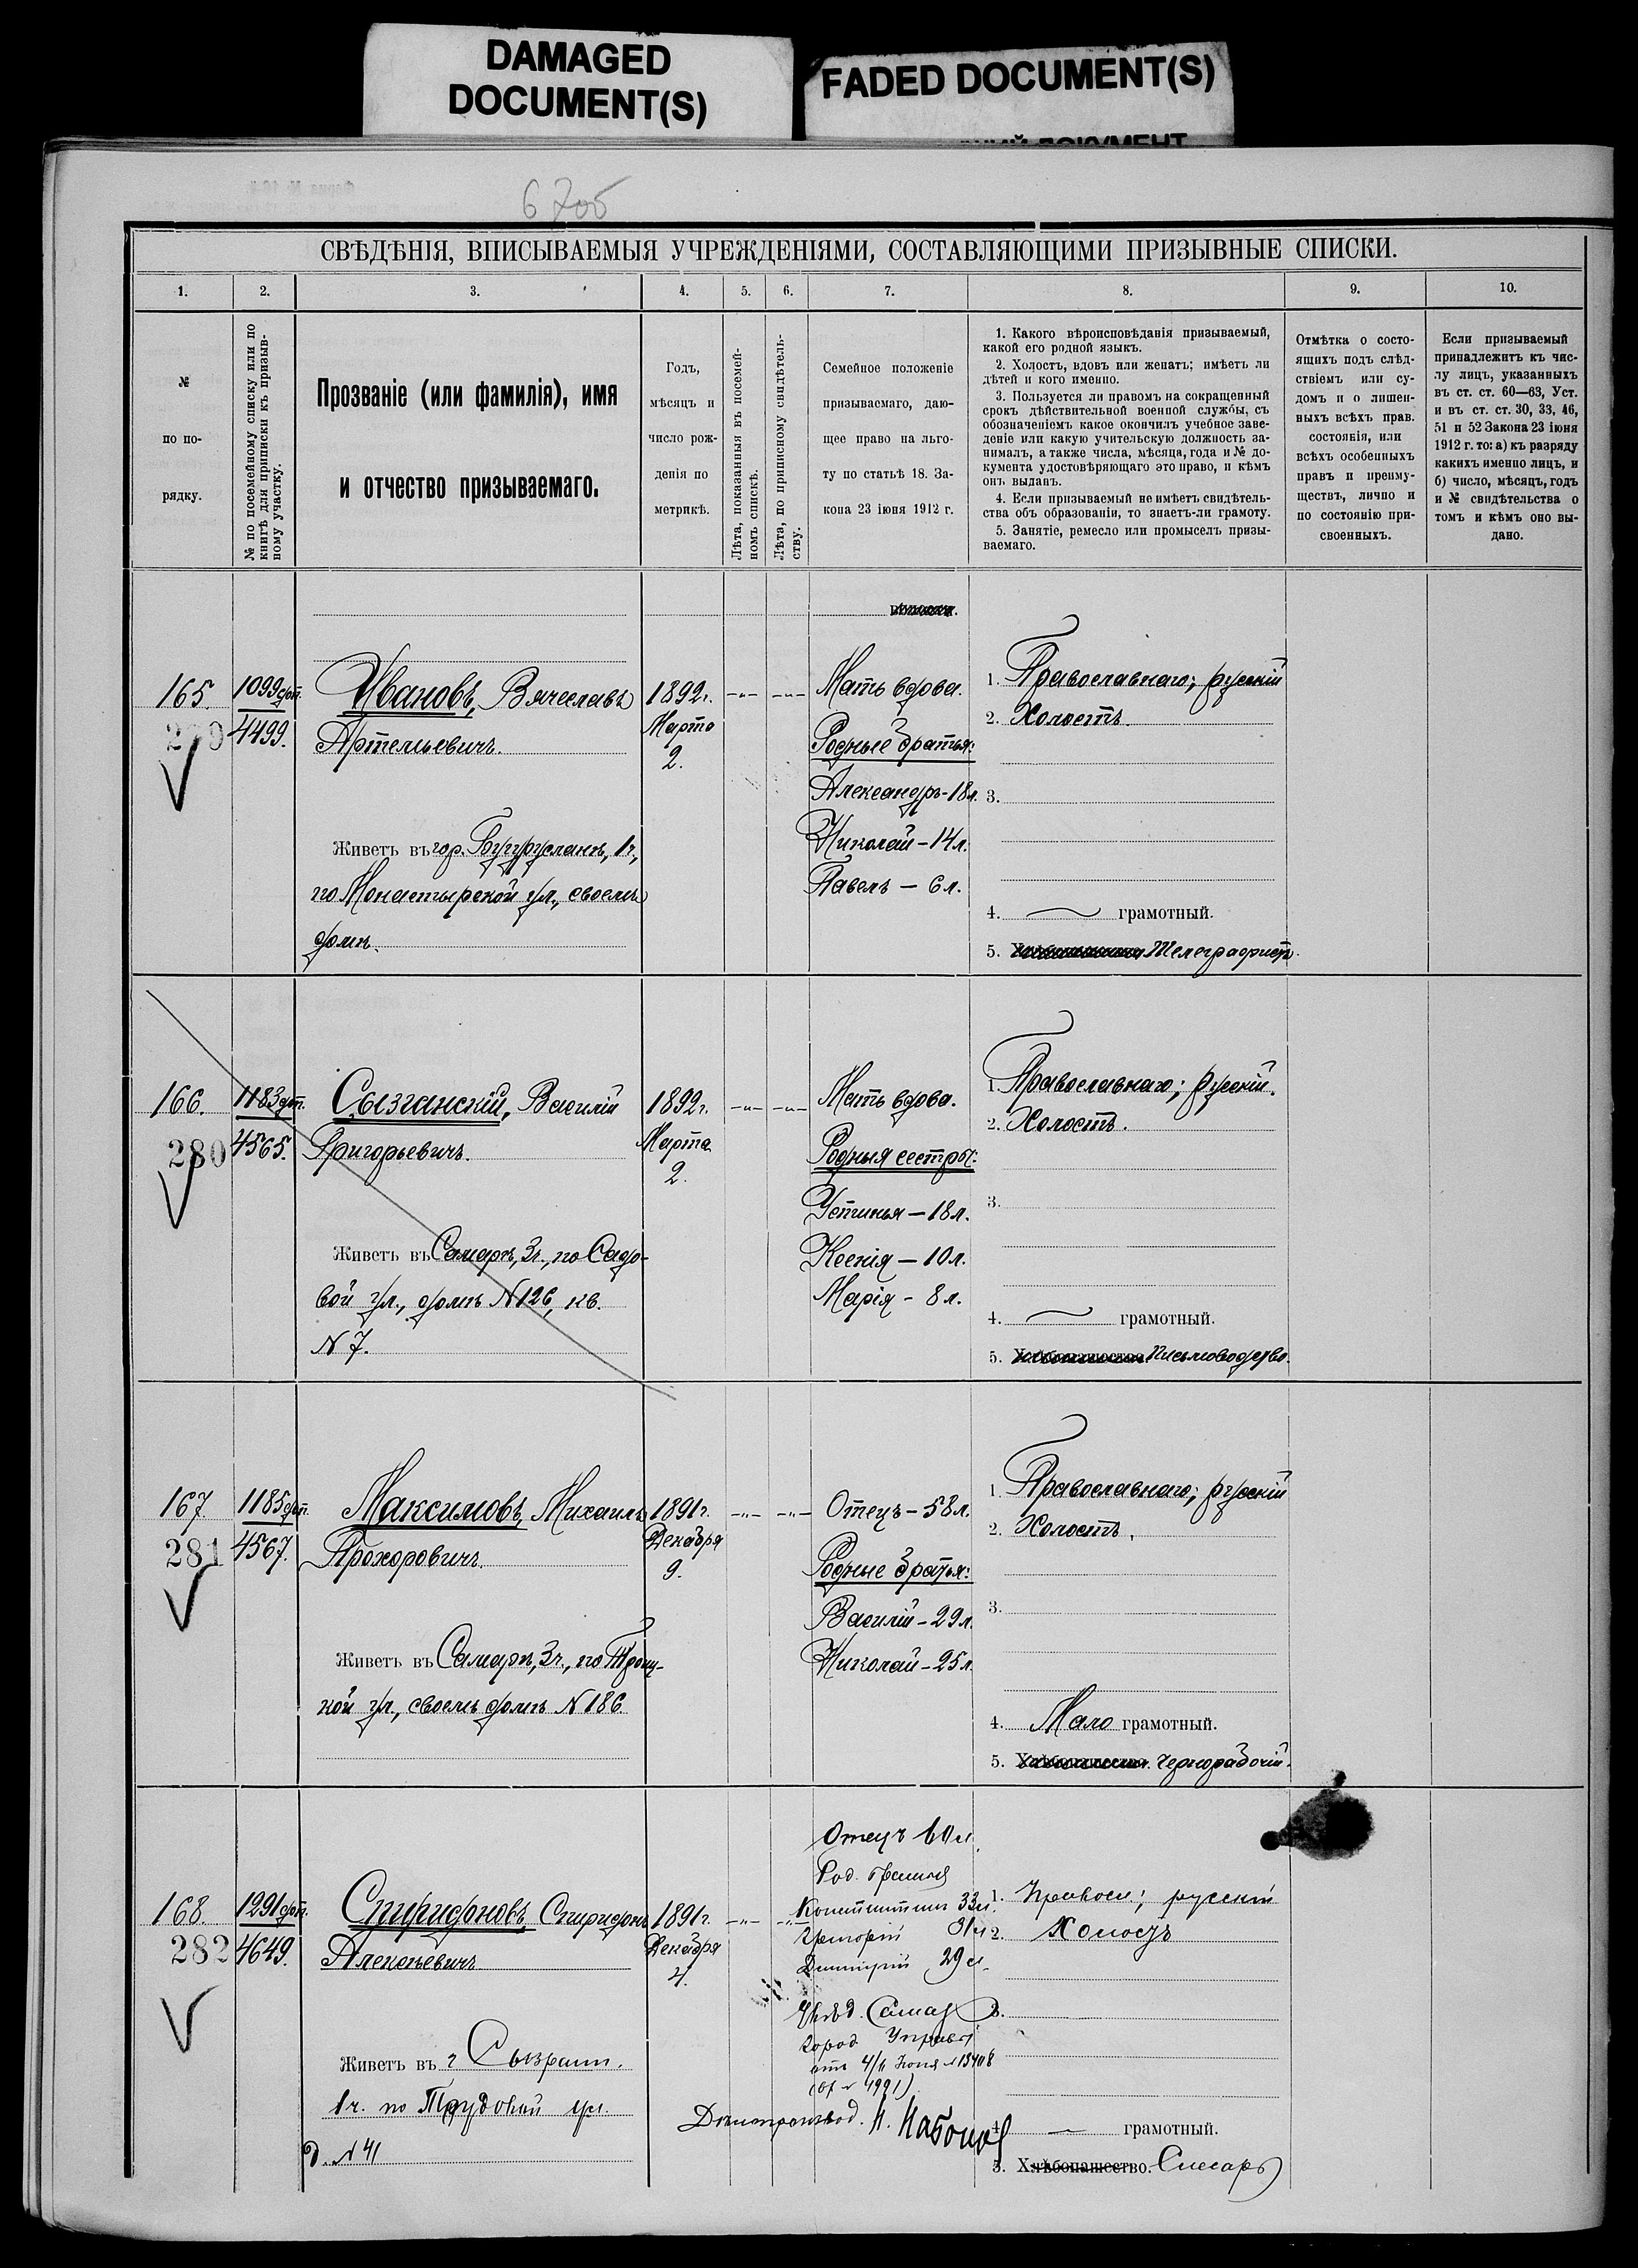 DAMAGED
DOCUMENT(S)
FADED DOCUMENT(S)
СВѢДѢНІЯ, ВПИСЫВАЕМЫЯ УЧРЕЖДЕНІЯМИ, СОСТАВЛЯЮЩИМИ ПРИЗЫВНЫЕ СПИСКИ.
1.
2.
3.
4.
5.
6.
7.
8.
9.
10.
№
по по-
рядку.
№ по посемейному списку или по
книгѣ для приписки къ призыв-
ному участку.
Прозваніе (или фамилія), имя
и отчество призываемаго.
Годъ,
мѣсяцъ и
число рож-
денія по
метрикѣ.
Лѣта, показанныя въ посемей-
номъ спискѣ.
Лѣта, по приписному свидѣтель-
ству.
Семейное положеніе
призываемаго, даю-
щее право на льго-
ту по статьѣ 18. За-
кона 23 іюня 1912 г.
1. Какого вѣроисповѣданія призываемый,
какой его родной языкъ.
2. Холостъ, вдовъ или женатъ; имѣетъ ли
дѣтей и кого именно.
3. Пользуется ли правомъ на сокращенный
срокъ дѣйствительной военной службы, съ
обозначеніемъ какое окончилъ учебное заве-
деніе или какую учительскую должность за-
нималъ, а также числа, мѣсяца, года и № до-
кумента удостовѣряющаго это право, и кѣмъ
онъ выданъ.
4. Если призываемый не имѣетъ свидѣтель-
ства объ образованіи, то знаетъ-ли грамоту.
5. Занятіе, ремесло или промыселъ призы-
ваемаго.
Отмѣтка о состо-
ящихъ подъ слѣд-
ствіемъ или су-
домъ и о лишен-
ныхъ всѣхъ прав.
состоянія, или
всѣхъ особенныхъ
правъ и преиму-
ществъ, лично и
по состоянію при-
своенныхъ.
Если призываемый
принадлежитъ къ чис-
лу лицъ, указанныхъ
въ ст. ст. 60—63, Уст.
и въ ст. ст. 30, 33, 46,
51 и 52 Закона 23 іюня
1912 г. то: а) къ разряду
какихъ именно лицъ, и
б) число, мѣсяцъ, годъ
и № свидѣтельства о
томъ и кѣмъ оно вы-
дано.
165.
279
1099 доп.
4499.
Ивановъ, Вячеславъ
Артемьевичъ.
Живетъ въ гор. Бугурусланѣ, 1 ч.,
по Монастырской ул., своемъ
домѣ.
1892 г.
Марта
2.
Мать вдова.
Родные братья:
Александръ - 18 л.
Николай - 14 л.
Павелъ - 6 л.
1. Православнаго; русскій
2. Холостъ.
3.
4. грамотный.
5. Хлѣбопашество. Телеграфистъ.
166.
280
1183 доп.
4565.
Сызганскій, Василій
Григорьевичъ.
Живетъ въ Самарѣ, 3 ч., по Садо-
вой ул., домъ № 126, кв.
№ 7.
1892 г.
Марта
2.
Мать вдова.
Родныя сестры:
Устинья - 18 л.
Ксенія - 10 л.
Марія - 8 л.
1. Православнаго; русскій.
2. Холостъ.
3.
4. грамотный.
5. Хлѣбопашество. Письмоводство.
167
281
1185 доп.
4567.
Максимовъ, Михаилъ
Прохоровичъ.
Живетъ въ Самарѣ, 3 ч., по Троиц-
кой ул., своемъ домѣ № 186.
1891 г.
Декабря
9.
Отецъ - 58 л.
Родные братья:
Василій - 29 л.
Николай - 25 л.
1. Православнаго; русскій
2. Холостъ.
3.
4. Мало грамотный.
5. Хлѣбопашество. Чернорабочій.
168.
282
1291 доп.
4649.
Спиридоновъ, Спиридонъ
Алексѣевичъ
Живетъ въ г Сызрани.
1 ч. по Трудовой ул.
д. № 41
1891 г.
Декабря
4.
Отецъ 60 л.
Род. братья
Константинъ 33 л.
Григорій 31 л
Дмитрій 29 л.
Увѣд. Самар
Город Управы
отъ 4/6 Іюня № 13408
Дѣлопроизвод. Н.
1. Правосл.; русскій
2. Холостъ
3.
4. грамотный.
5. Хлѣбопашество. Слесарь